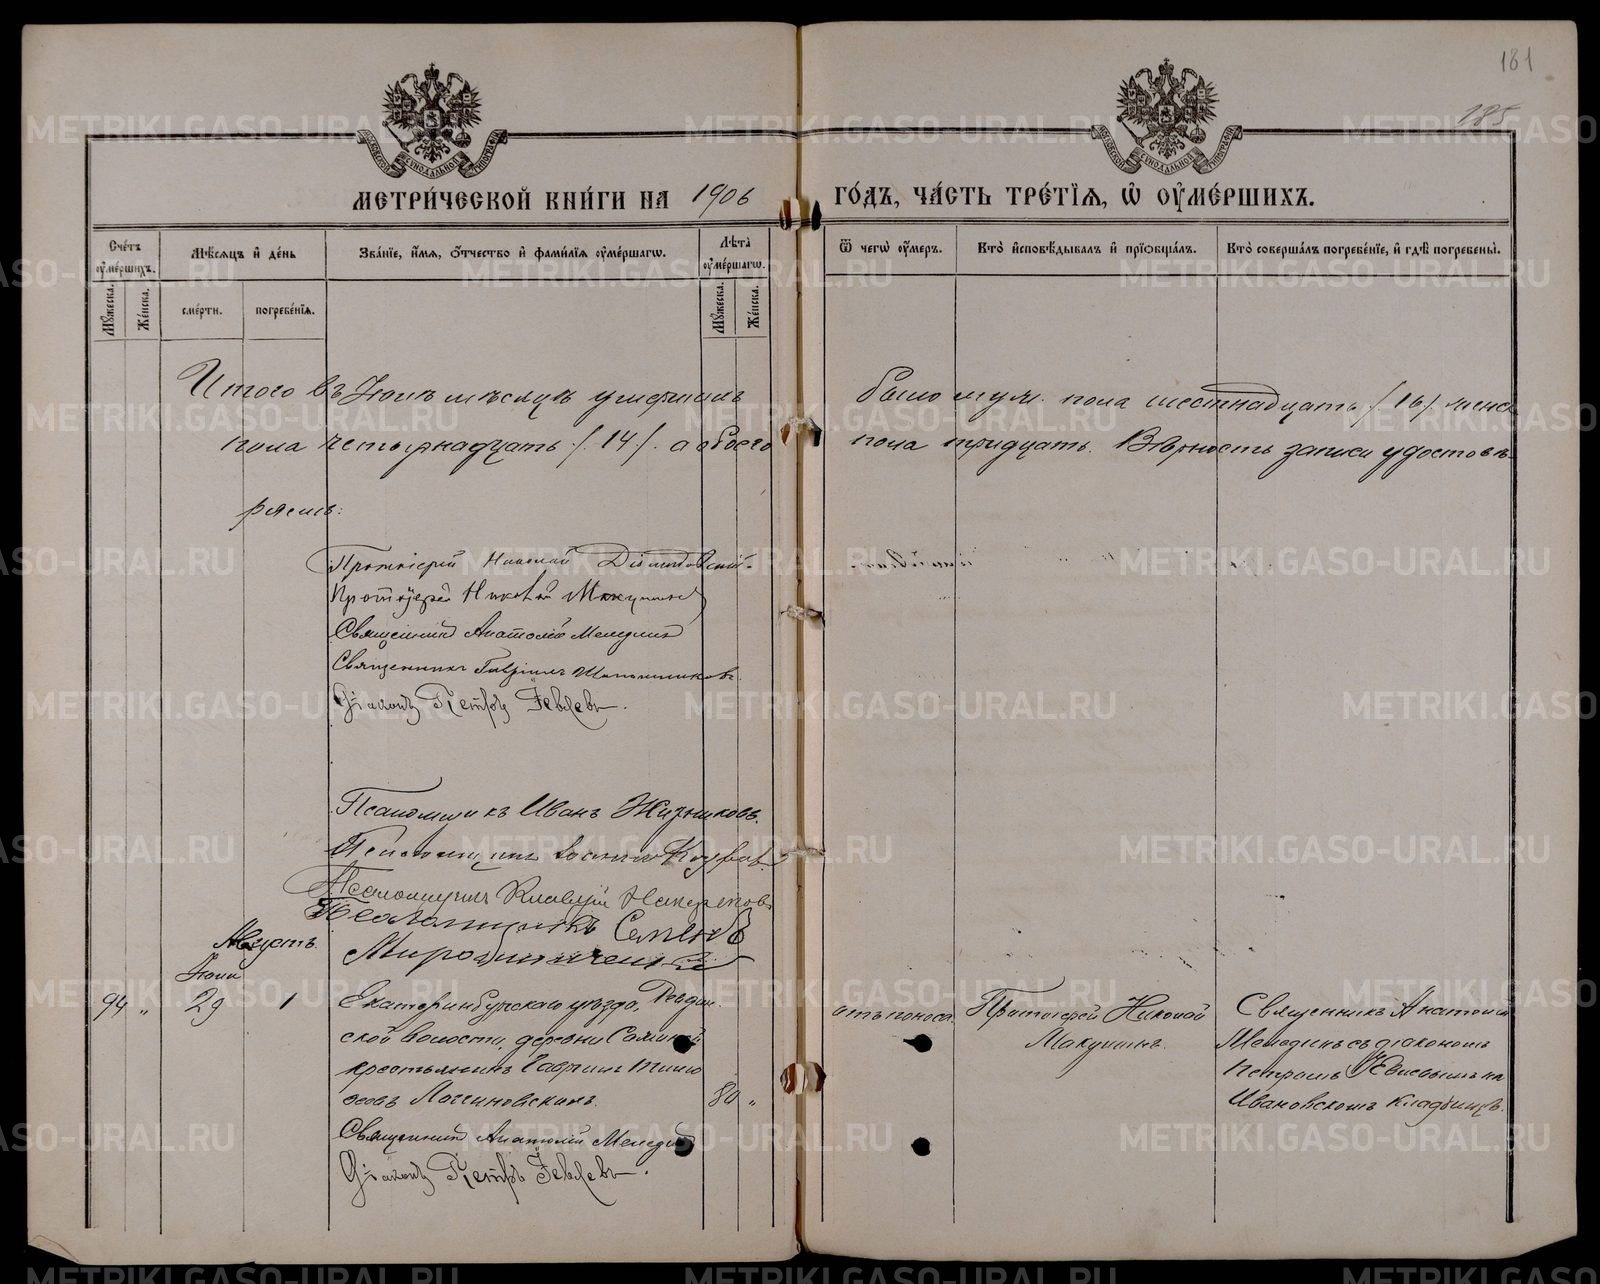 181
185
МЕТРИ́ЧЕСКОЙ КНИ́ГИ НА 1906
ГО́ДЪ, ЧА́СТЬ ТРЕ́ТЇѦ, Ѡ҆ ОУ҆МЕ́РШИХЪ.
Сче́тъ оу҆ме́ршихъ.
Мꙋ́жеска.
Же́нска.
Мѣ́сѧцъ и҆ де́нь
сме́рти.
погребе́нїѧ.
Зва́нїе, и҆́мѧ, ѻ҆́тчество и҆ фами́лїѧ оу҆ме́ршагѡ.
Лѣ́та оу҆ме́ршагѡ.
Мꙋ́жеска.
Же́нска.
Ѿ чегѡ̀ оу҆́меръ.
Кто̀ и҆сповѣ́дывалъ и҆ прїѡбща́лъ.
Кто̀ соверша́лъ погребе́нїе, и҆ гдѣ̀ погребены̀.
Итого въ Юлѣ мѣсяцѣ умершихъ
было муж. пола шестнадцать /16/. женск
пола четырнадцать /14/. а обоего
пола тридцать. Вѣрность записи удостовѣ-
ряемъ:
Протоіерей Николай
Протоіерей Николай Макушинъ
Священникъ Анатолій Мелединъ
Священникъ Гавріилъ
Діаконъ Петръ Іевлевъ.
Псаломщикъ Иванъ
Псаломщикъ
Псаломщикъ Клавдій
Псаломщикъ Семенъ
Августъ.
Юля
94 „ 29 1
Екатеринбургскаго уѣзда, Ревдин
ской волости, деревни
крестьянинъ Гавріилъ Тимо
ѳеевъ
80 „
отъ поноса.
Протоіерей Николай
Макушинъ.
Священникъ Анатолій
Мелединъ съ діакономъ
Петромъ Іевлевымъ на
Ивановскомъ кладбищѣ.
Священникъ Анатолій Мелединъ
Діаконъ Петръ Іевлевъ.
METRIKI.GASO-URAL.RU